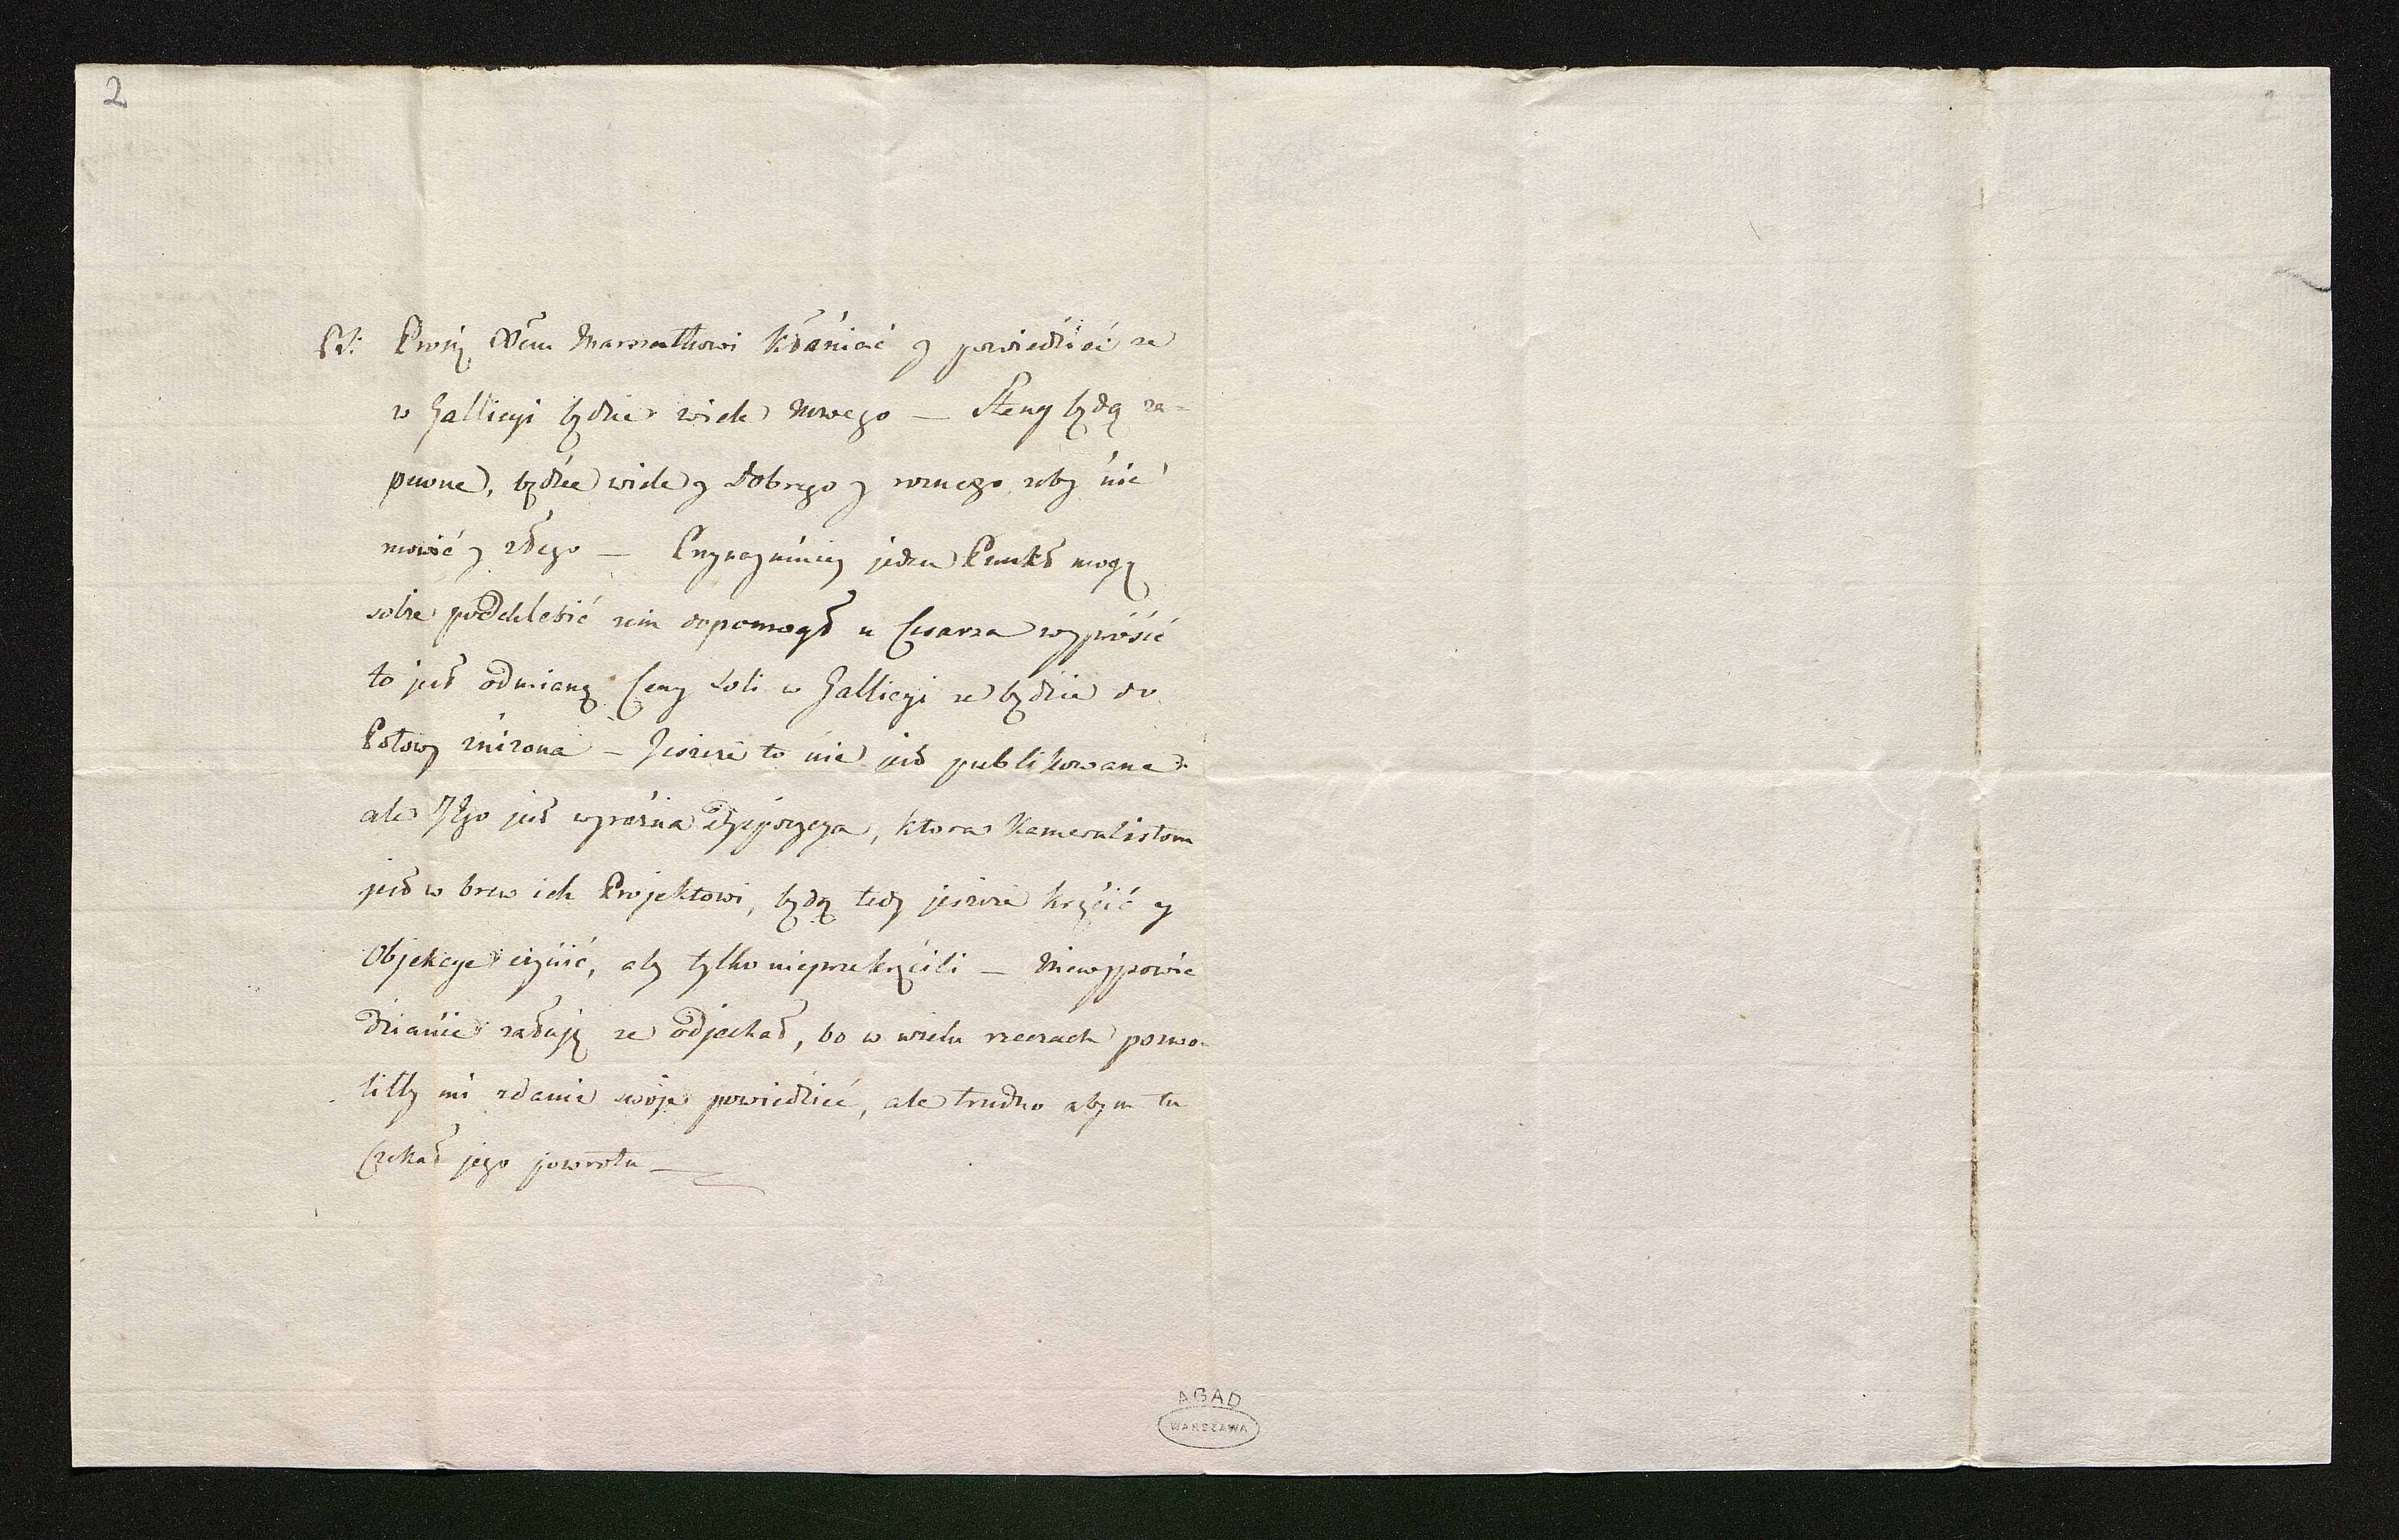 2
2
PS: Proszę Xciu Marszałkowi kłaniać y powiedźieć ze
w Gallicyi będzie wiele nowego — Steny będą za-
pewne, będzie wiele y dobrego y roznego zeby nie
mowić y złego — Przynaymniey jeden Punkt mogę
sobie podchlebić zem dopomogł u Cesarza wyprosić
to jest odmianę Ceny Soli w Gallicyi ze będzie do
Połowy znizona — Jeszcze to nie jest publikowane
ale Jego jest wyraźna dyspozycya, ktora Kameralistom
jest w brew ich Projektowi, będą tedy jeszcze kręcić y
Objekcye czynić, aby tylko nieprzekręcili — Niewypowie
dzianie załuję ze odjechał, bo w wielu rzeczach pozwo-
liłby mi zdanie swoje powiedźieć, ale trudno abym tu
Czekał jego powrotu —
AGAD
WARSZAWA